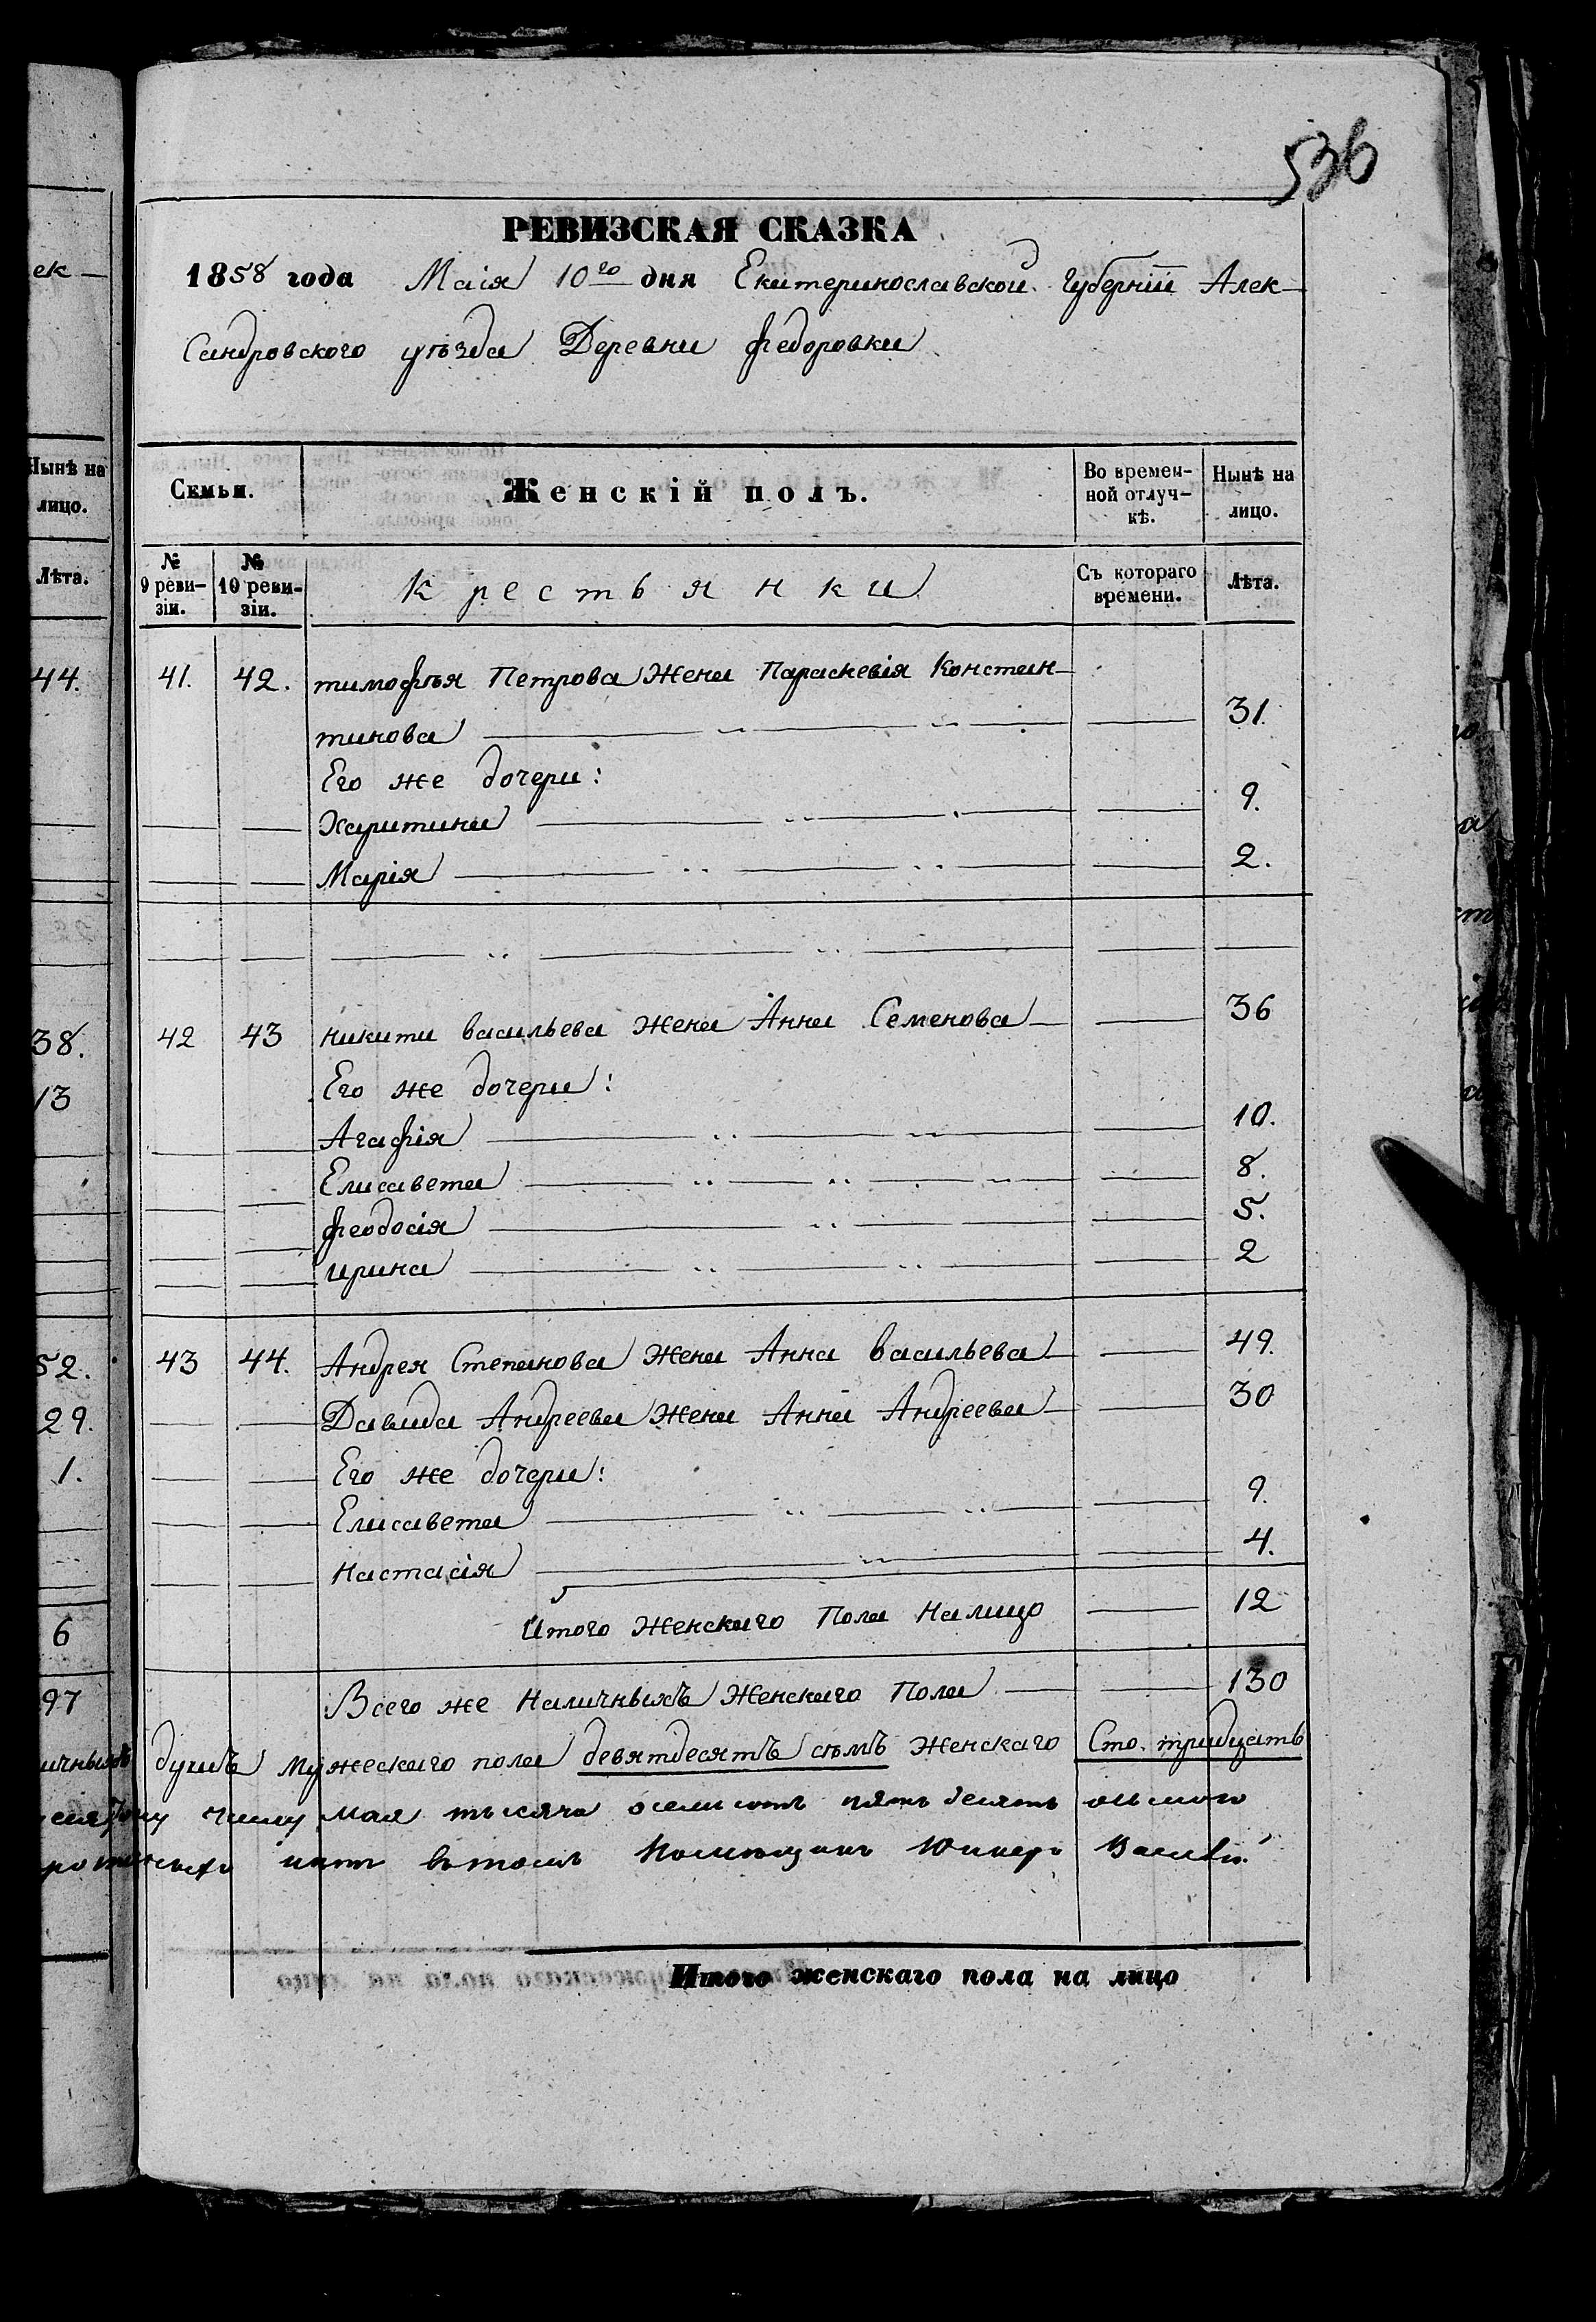 536
РЕВИЗСКАЯ СКАЗКА
1858 года Маія 10го дня Екатеринославской Губерніи Алек-
сандровского уѣзда Деревни Федоровки
Семьи. Женскій полъ. Во времен-ной отлуч-кѣ. Нынѣ на лицо.
№ 9 реви-зіи. № 10 реви-зіи. Крестьянки Съ котораго времени. Лѣта.
41. 42. тимофѣя Петрова Жена Параскевія Констан-
тинова 31.
Его же дочери:
Харитина 9.
Марія 2.
42 43 никити васильева Жена Анна Семенова 36
Его же дочери:
Агафія 10.
Елисавета 8.
феодосія 5.
ирина 2
43 44. Андрея Степанова Жена Анна васильева 49.
Давида Андреева Жена Анна Андреева 30
Его же дочери:
Елисавета 9.
настасія 4.
Итого Женскаго Пола Налицо 12
Всего же Наличныхъ Женскаго Пола 130
душъ мужескаго пола девятдесятъ сѣмъ Женскаго Сто. тридцать
мая тысяча осемьсотъ пять десятъ осьмого
нѣтъ въ томъ Помѣщикъ Юнкеръ Василій
Итого женскаго пола на лицо
ек-
Нынѣ на
лицо.
Лѣта.
44.
38.
13
52.
29.
1.
6
97